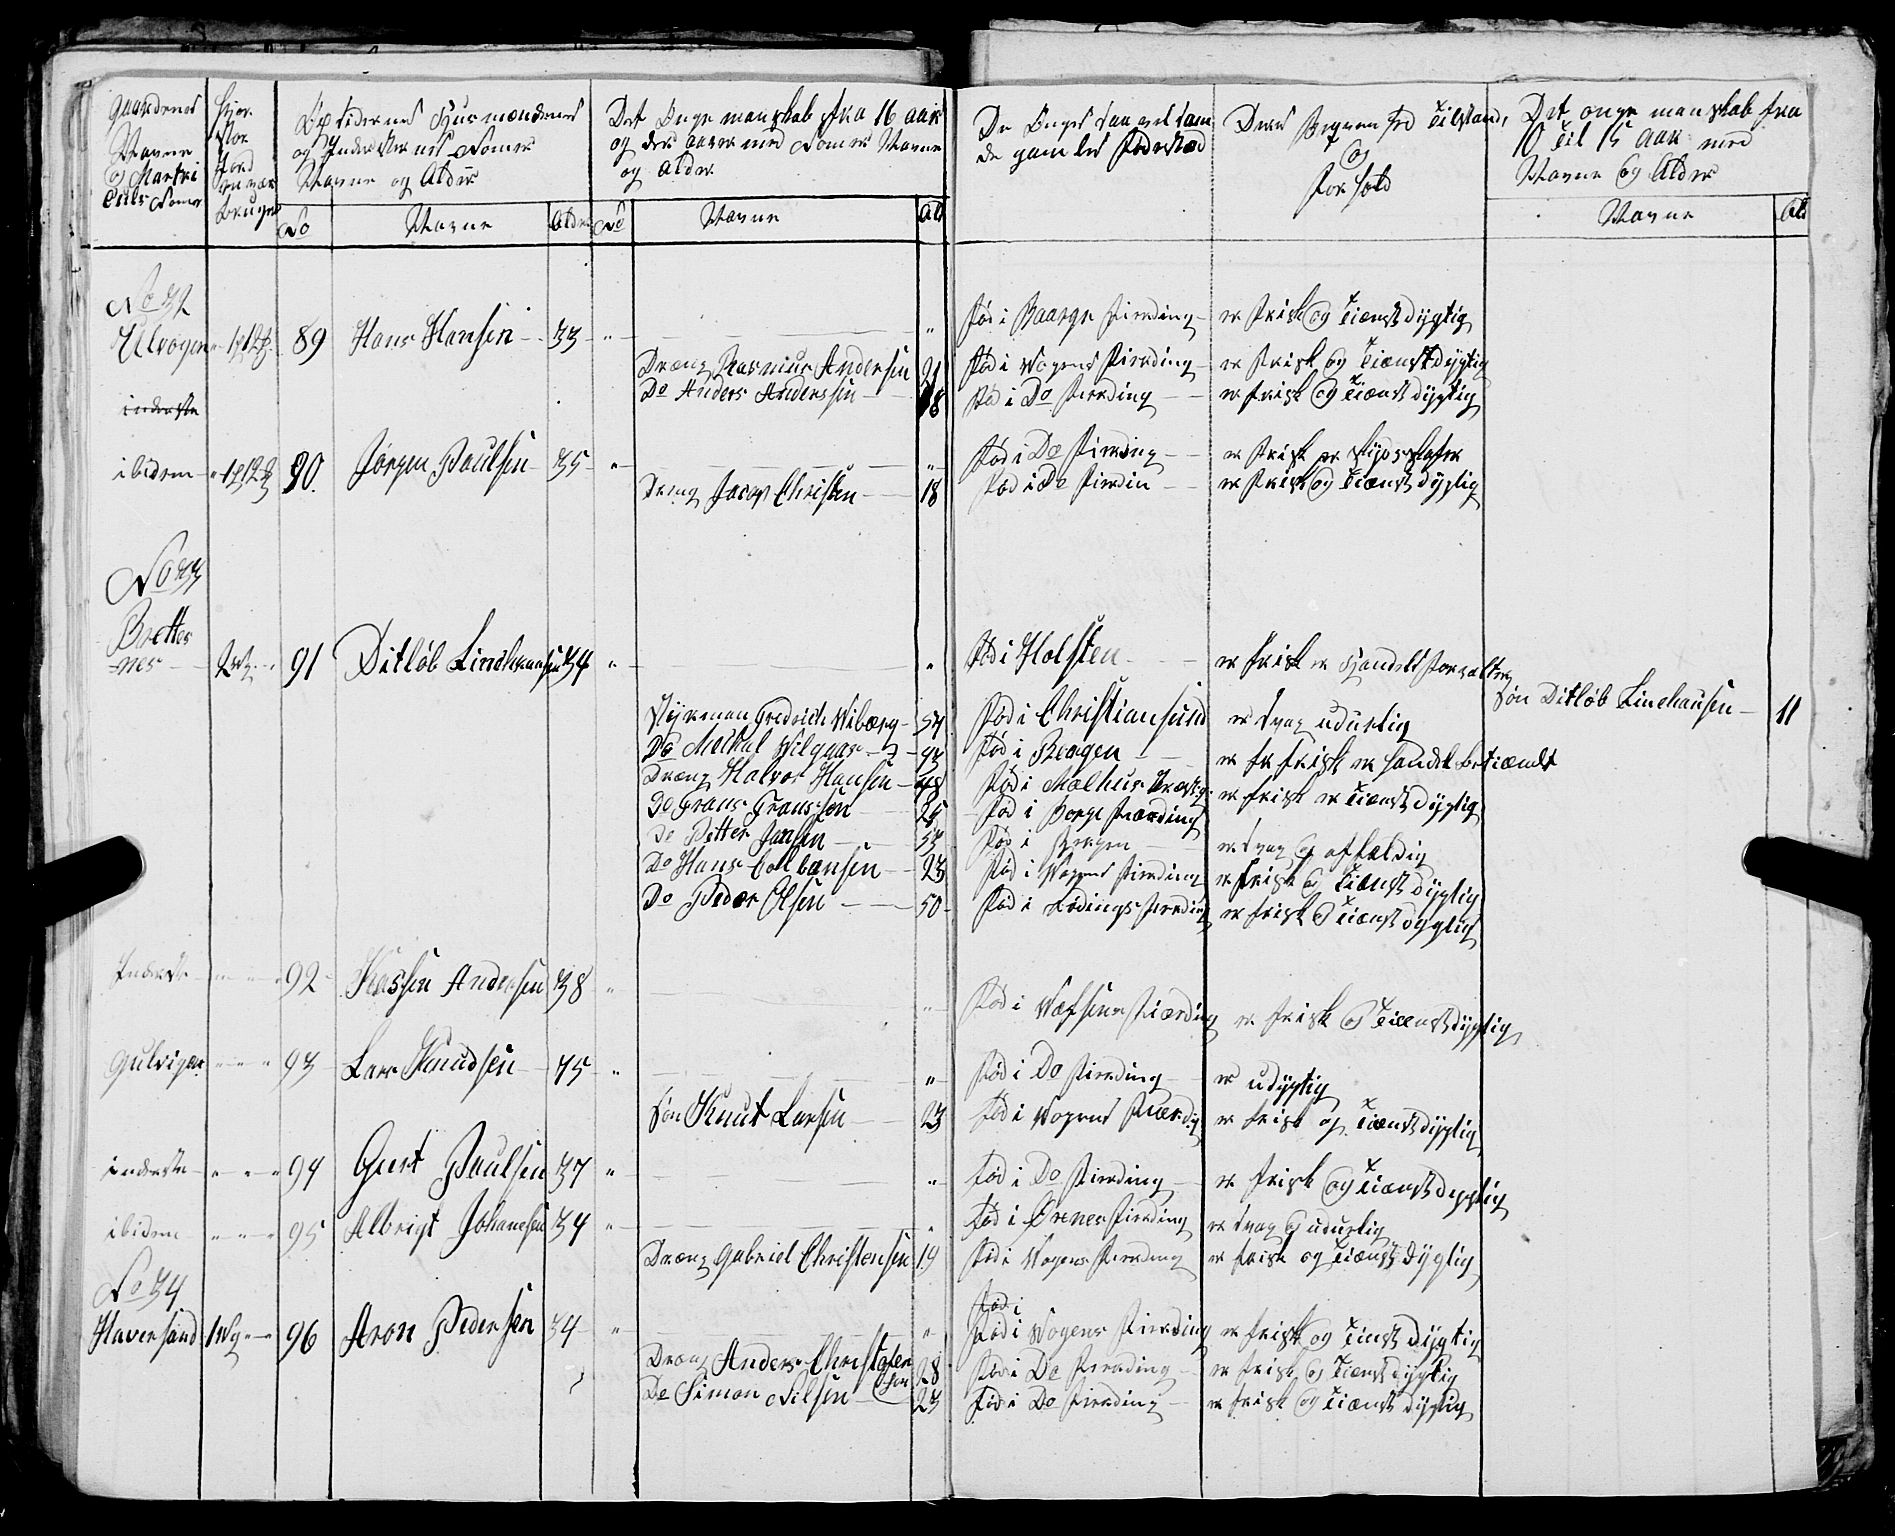 Gaardenes Navne og Matri Culs Nomer
Hvor stor Jord en vær bruger
Opsidernes Husmændenes og Indersternes Nomer Navne og Alder
Det Unge manskab fra 16 aar og der over med Nomer Navne og Alder
De Unges saavel som de gamles Fødested
Deres Beqvemhed Tilstand og Forhold
Det unge manskab fra 10 til 15 aar med Navne og Alder
No Navne Alder No Navne Ald Navne Ald
No 32
Ulvogen 89 Hans Hansen 33 Fød i Baarge Fierding er Frisk og Tienstdygtig
Dræng Rasmus Andersen 21 Fød i Vogens Fierding er Frisk og Tienstdygtig
inderste Do Anders Anderssen 18 Fød i Do Fierding er frisk og Tienstdygtig
ibidem 90 Jørgen Paulsen 35 Fød i Do Fierding er Frisk er skydsskafer
Dreng Jacop Christen 18 Fød i Do Fierdin er Frisk og Tienstdygtig
No 33
Brettes
nes 2 91 Ditløb Lindhausen 54 Fød i Holsten er frisk er Handels forvalter
Søn Ditløb Lindhausen 11
Styrman Fredrich Wibærg 57 Fød i Christiansund er svag udurlig
Do Meikal 43 Fød i Bergen er frisk er handels betiændt
Dræng Halvor Hansen 48 Fød i Mælhus Præstg. er frisk er Tienstdygtig
Do Frans Franssen 25 Fød i Borge Fiærding
Do Petter Jansen 53 Fød i Bergen er svag og affældig
Do Hans Colbansen 23 Fød i Vogens Fierding er frisk og Tienstdygtig
Do Peder Olsen 50 Fød i Lødings Fierding er frisk og Tienstdygtig
Inderste 92 Andersen 38 Fød i Væfsens Fiærding er frisk og Tienstdygtig
Gulvigen 93 Lars Knudsen 75 Fød i Do Fierding er udygtig
Søn Knut Larsen 23 Fød i Vogens Fiærdig er frisk og Tienstdygtig
inderste 94 Gurt Paulsen 37 Fød i Do Fierding er frisk og Tienstdygtig
ibidem 95 Albrigt Johanesen 34 Fød i Ørenes Fierding er svag og udurlig
Dræng Gabriel Christensen 19 Fød i Vogens Fierding er frisk og Tienstdygtig
No 34
Fød i
Haversand 1 Wg 96 Aron Pedersen 34 Fød i Vogens Fierding er frisk og Tienstdygtig
Dræng Anders Christofersen 28 Fød i Do Fierding er frisk og Tienstdygtig
Do Simon Nilsen 23 Fød i Do Fierding er frisk og Tienstdygtig